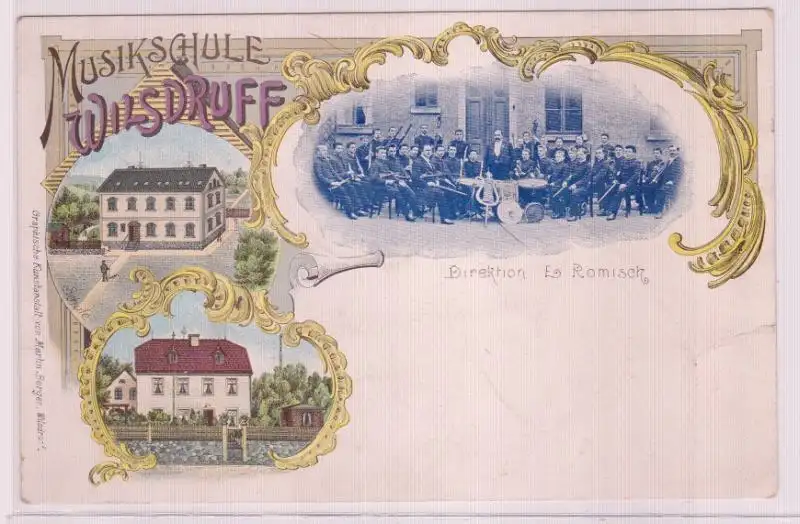 MUSIKSCHULE
WILSDRUFF
Direktion E. Römisch
Graphische Kunstanstalt von Martin Berger, Wilsdruff.